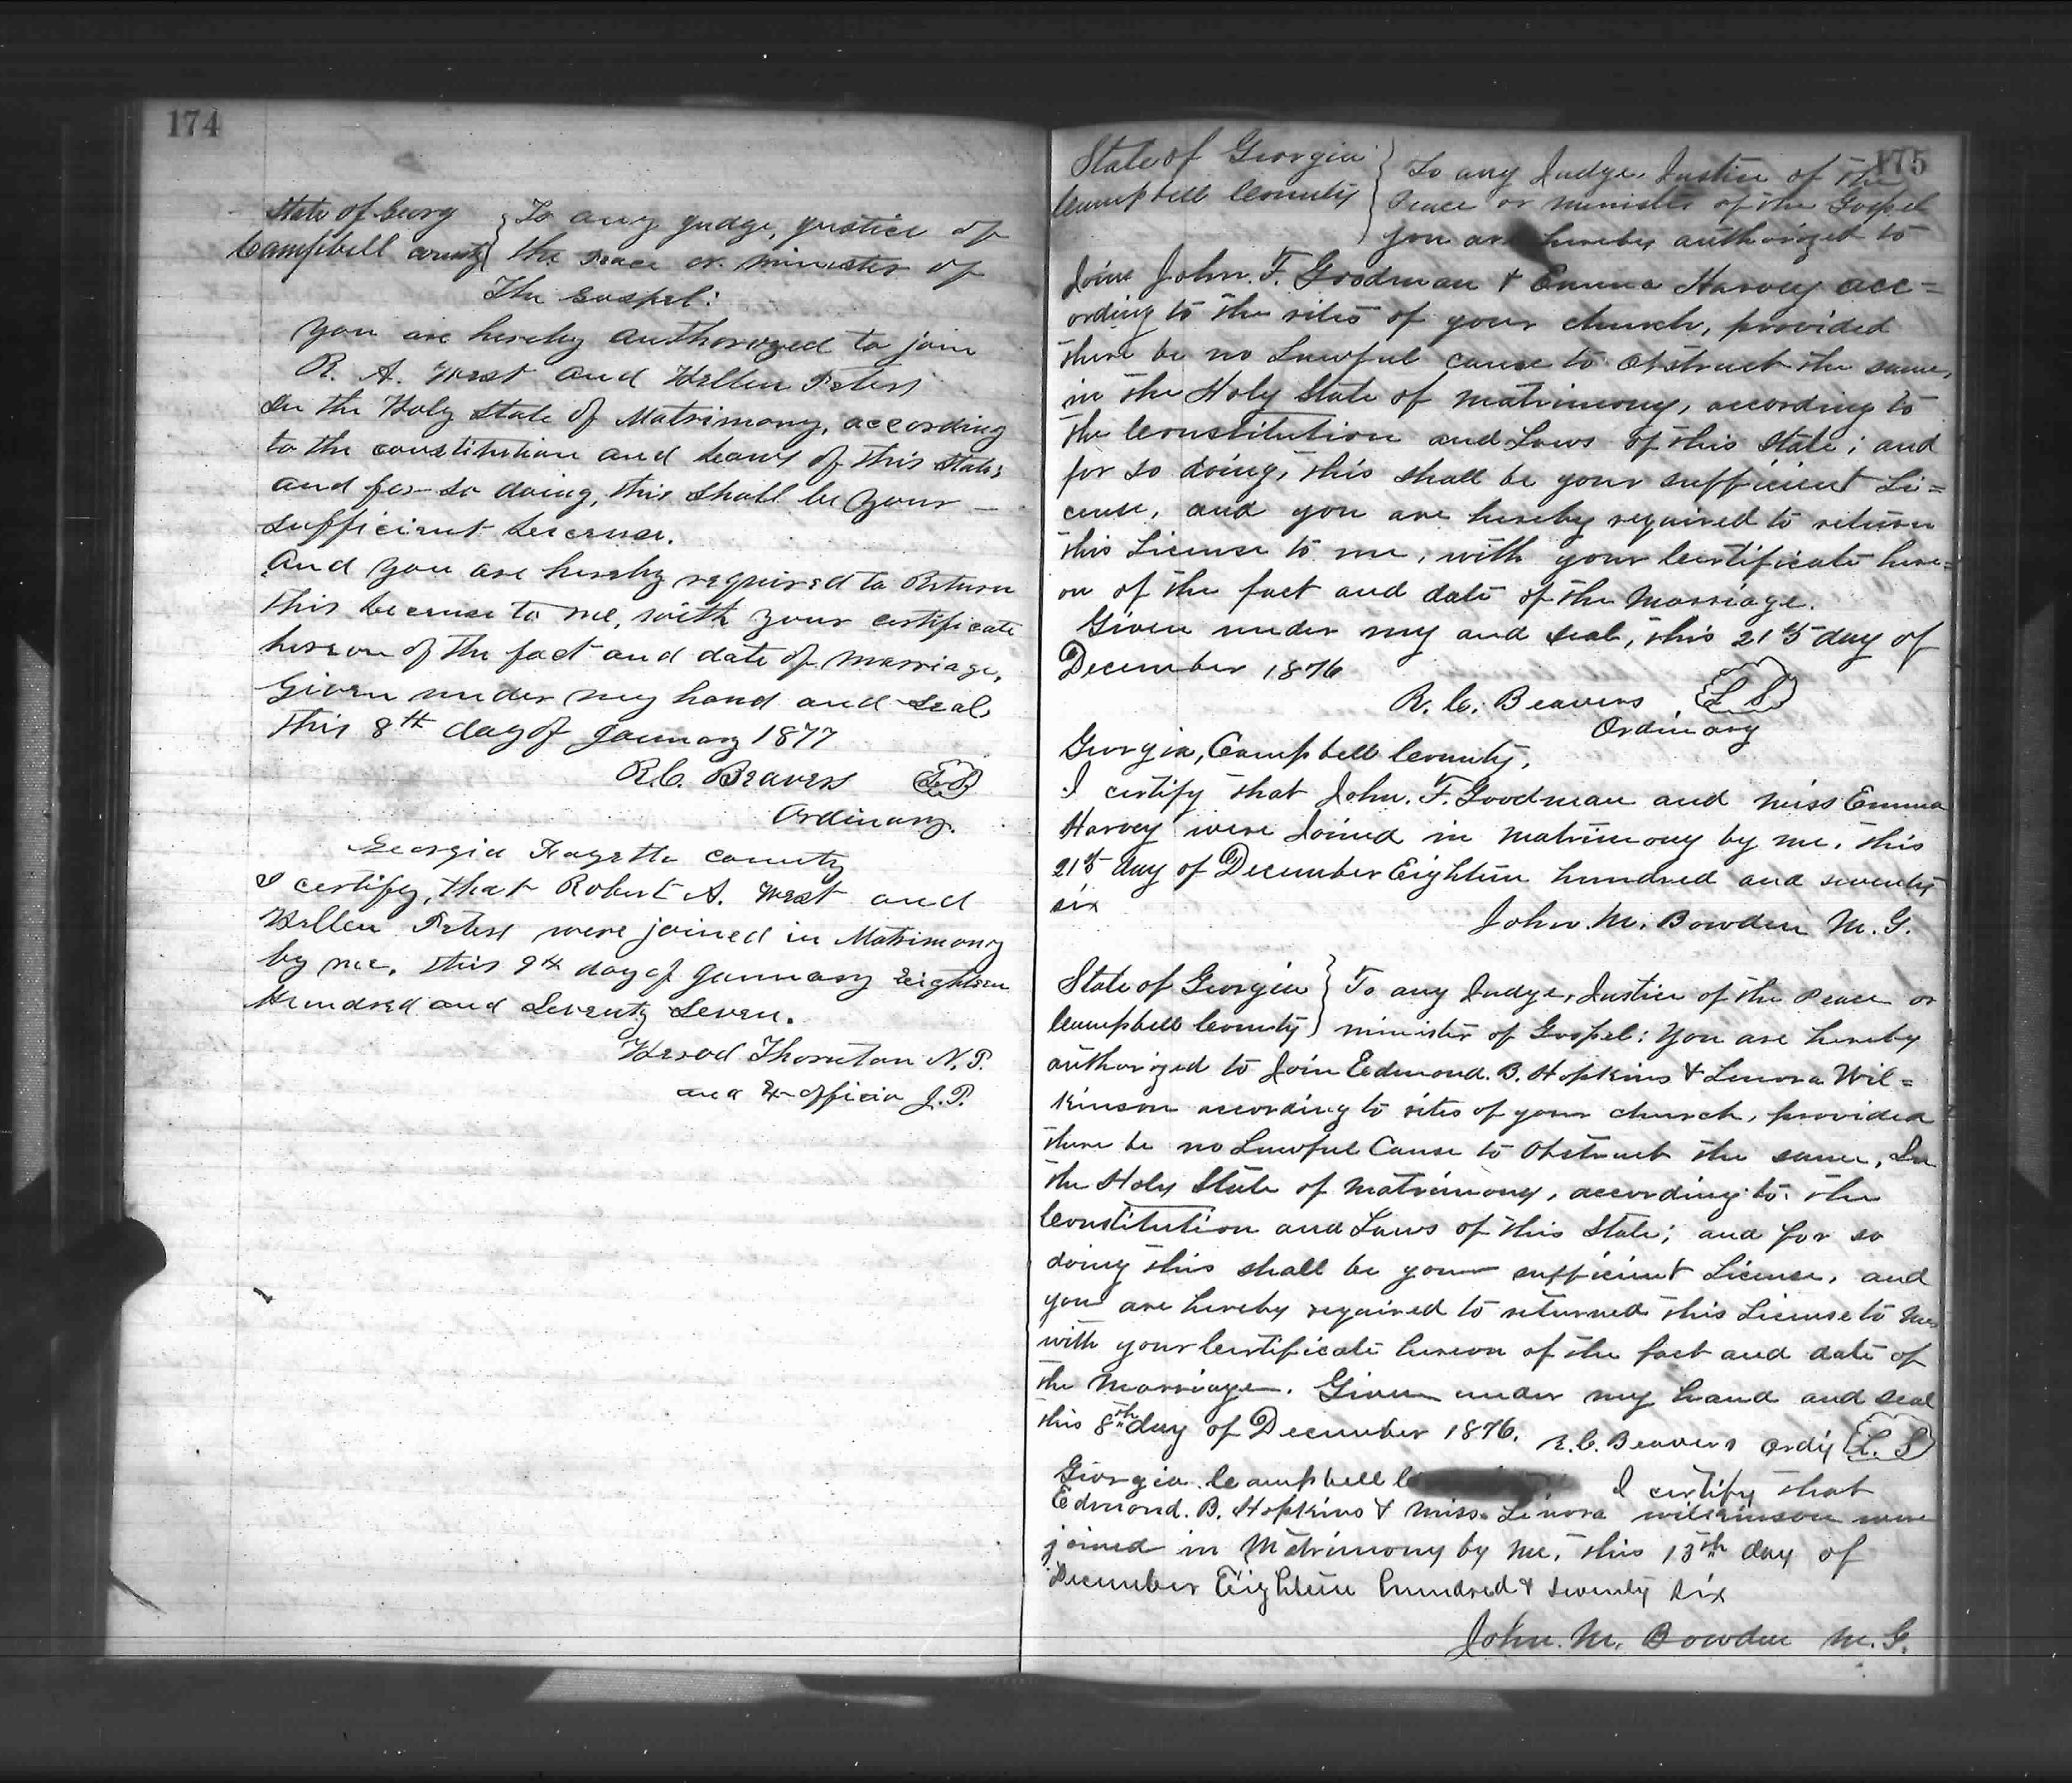 174
State of Georg
Campbell county } To any Judge, Justice of
the Peace or minister of
The Gospel:
You are hereby authorized to join
R. A. West and Hellen Peters
In the Holy State of Matrimony, according
to the constitution and Laws of this State;
and for so doing, this shall be your —
sufficient License.
And you are hereby required to Return
this License to me, with your certificate
hereon of the fact and date of marriage,
Given under my hand and seal,
This 8th day of January 1877
R.C. Beavers L.S.
Ordinary.
Georgia Fayette county
I certify, that Robert A. West and
Hellen Peters were joined in Matrimony
by me, this 9th day of January Eighteen
Hundred and Seventy Seven.
Herod Thornton N.P.
and Ex officio J.P.
175
State of Georgia
Campbell County } To any Judge, Justice of the
Peace or minister of the Gospel
you are hereby authorized to
Joine John. F. Goodman & Emma Harvey acc=
ording to the rites of your church, provided
there be no Lawful cause to obstruct the same,
in the Holy State of matrimony, according to
the Constitution and Laws of this State; and
for so doing, this shall be your sufficient Li=
cense, and you are hereby required to return
this License to me, with your Certificate here=
on of the fact and date of the Marriage.
Given under my and seal, this 21st day of
December 1876
R. C. Beavers L S
Ordinary
Georgia, Campbell County,
I certify that John. F. Goodman and miss Emma
Harvey were Joined in matrimony by me, this
21st day of December Eighteen hundred and seventy
six
John. M. Bowden M. G.
State of Georgia } To any Judge, Justice of the Peace or
Campbell County } minister of Gospel: you are hereby
authorized to Join Edmond. B. Hopkins & Lenora Wil=
kinson according to rites of your church, provided
there be no Lawful Cause to Obstruct the same, In
the Holy State of Matrimony, according to the
Constitution and Laws of this State; and for so
doing this shall be your sufficient License, and
you are hereby required to returned this License to me
with your Certificate hereon of the fact and date of
the Marriage. Given under my hand and seal
this 8th day of December 1876. R.C. Beavers Ordy L. S
Georgia Campbell C I certify that
Edmond. B. Hopkins & Miss. Linora wilkinson were
joined in Matrimony by me, this 13th day of
December Eighteen hundred & seventy six
John. M. Bowden M. G.